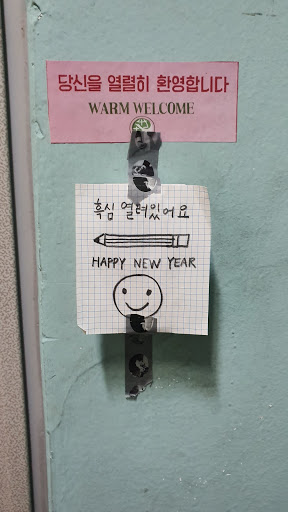 당신을 열렬히 환영합니다
WARM WELCOME
흑심 열려있어요
HAPPY NEW YEAR